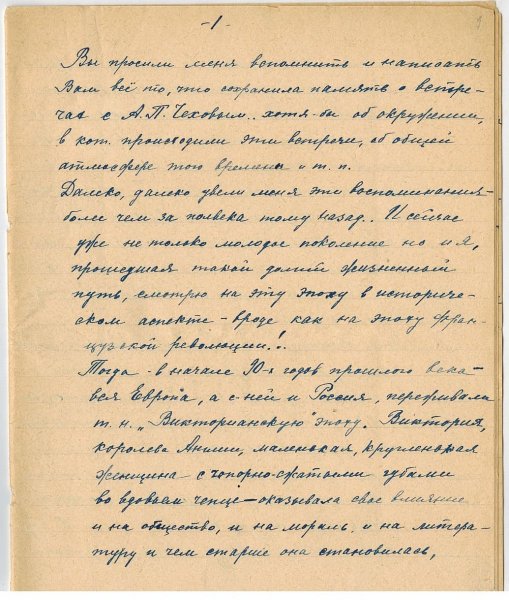 -1-
1
Вы просили меня вспомнить и написать
Вам всё то, что сохранила память о встре-
чах с А.П. Чеховым.. хотя-бы об окружении,
в кот. происходили эти встречи, об общей
атмосфере того времени и т. п.
Далеко, далеко увели меня эти воспоминания -
более чем за полвека тому назад.. И сейчас
уже не только молодое поколение но и я,
прошедшая такой долгий жизненный
путь, смотрю на эту эпоху в историче-
ском аспекте - вроде как на эпоху фран-
цузской революции!..
Тогда - в начале 90-х годов прошлого века -
вся Европа, а с ней и Россия, переживали
т. н. „Викторианскую" эпоху. Виктория,
королева Англии, маленькая, кругленькая
женщина - с чопорно-сжатыми губами
во вдовьем чепце - оказывала свое влияние
и на общество, и на мораль. и на литера-
туру и чем старше она становилась,